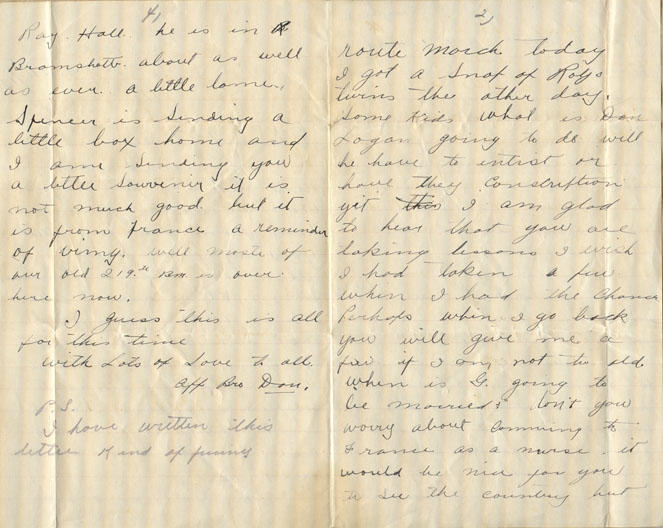 4,
Ray. Hall. he is in
Bramshott. about as well
as ever. a little lame.
Spencer is sending a
little box home and
I ame sending you
a littel Souvenir it is
not much good. but it
is from france a reminder
of vimy. well moste of
our old 219th is over
here now.
I guess this is all
for this time
with Lots of Love to all.
Aff Bro Don.
P.S.
I have written this
letter kind of funny
route march today
I got a snap of
twins the other day.
some kids what is Dan
Logan going to do will
he have to intist or
have they Consription
yet this I am glad
to hear that you are
taking lessons I wish
I had taken a few
when I had the Chance
Perhaps when I go back
you will give me a
few if I am not to old.
when is G. going to
be married? don't you
worry about comming to
France as a nurse. it
would be nice for you
to see the country but